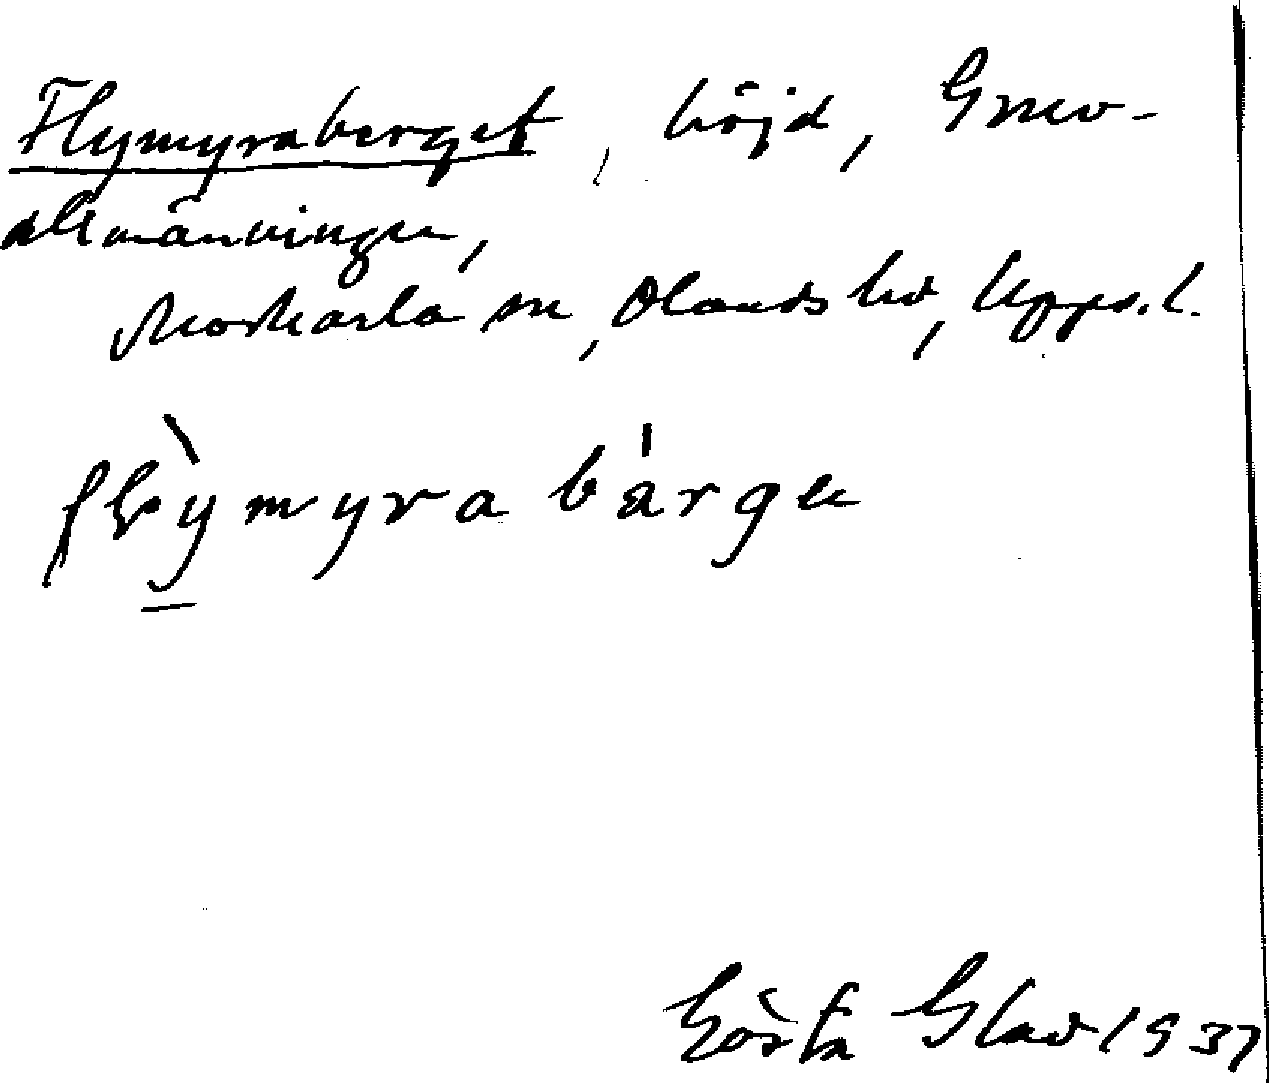 Flymyraberget, höjd, Gmev-
allmänningen,
Morkarla sn, Olands hd, Upps. l.
flỳmyra bárgen
Gösta Glad 1937